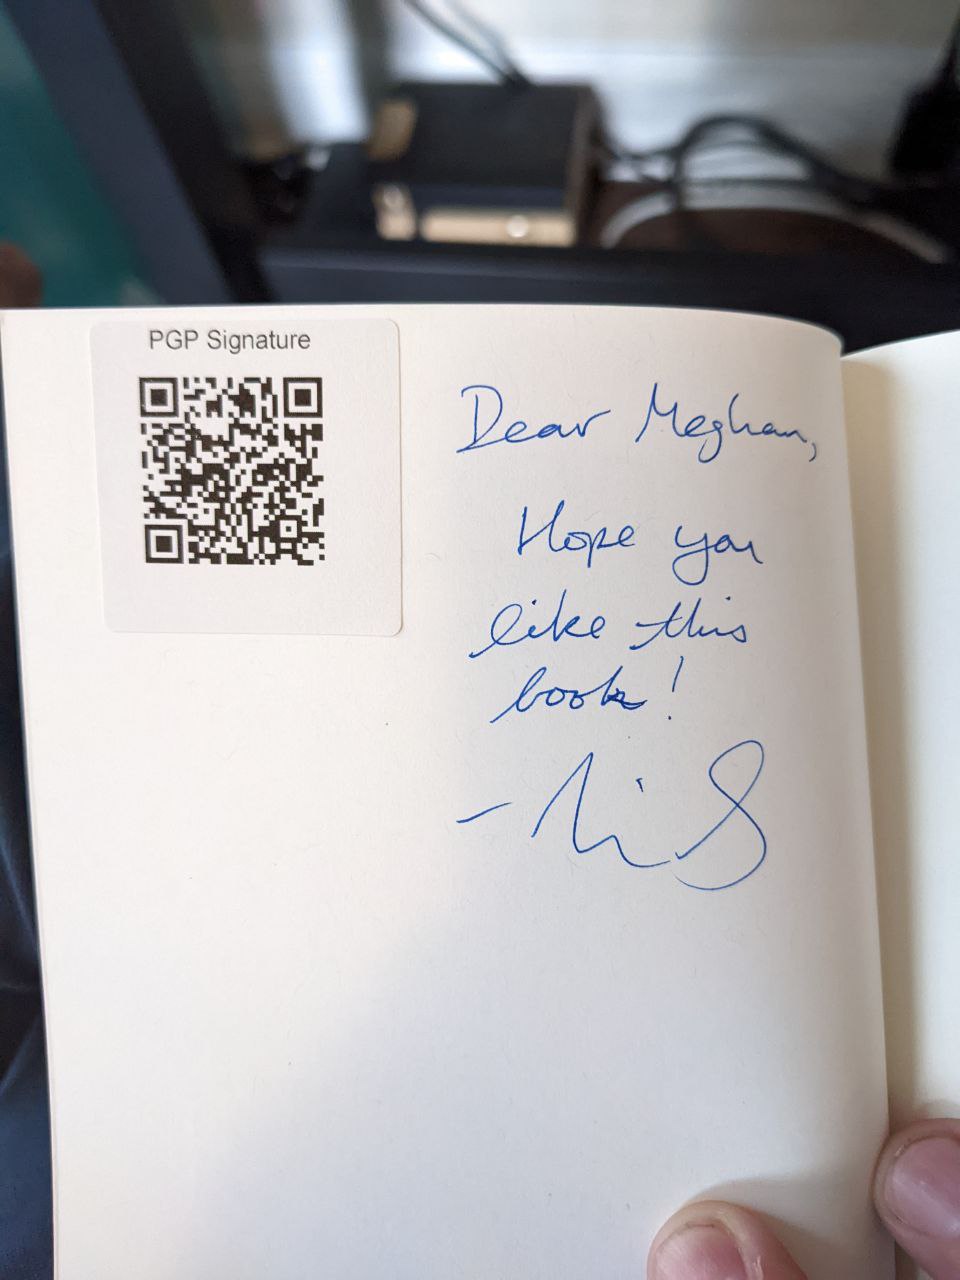 PGP Signature
Dear Meghan,
Hope you
like this
book!